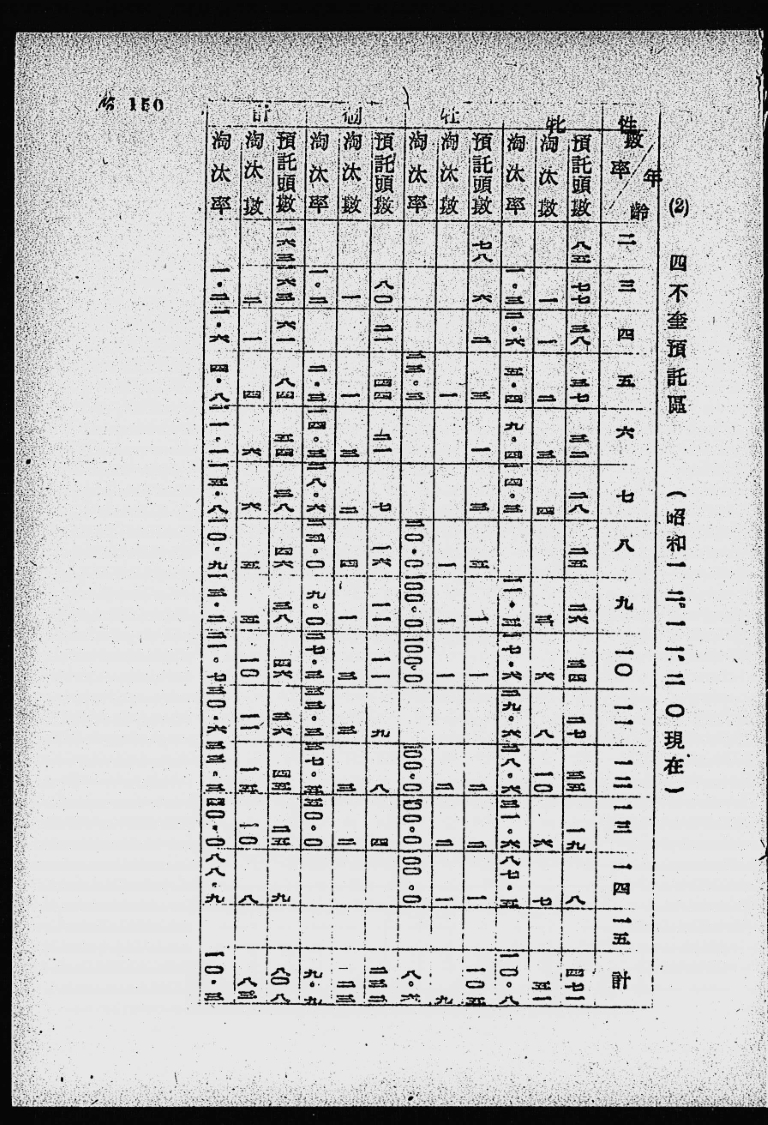 150
(2) 四不奎預託區 (昭和一二、一一、二〇現在)
性 數率 年齢 二 三 四 五 六 七 八 九 一〇 一一 一二 一三 一四 一五 計
牝
預託頭數 八五 七七 三八 三七 三二 二八 二五 二六 三四 二七 三五 一九 八 四七一
淘汰數 一 一 二 三 四 三 六 八 一〇 六 七 五一
淘汰率 一・三 二・六 五・四 九・四 一四・三 一一・三 一七・六 二九・六 二八・六 三一・六 八七・五 一〇・八
牡
預託頭數 七八 六 二 三 一 三 五 一 一 二 二 一 一〇五
淘汰數 一 一 一 一 二 二 一 九
淘汰率 三三・三 二〇・〇 一〇〇・〇 一〇〇・〇 一〇〇・〇 一〇〇・〇 一〇〇・〇 八・六
預託頭數 八〇 二一 四四 二一 七 一六 一一 一一 九 八 四 二三二
淘汰數 一 一 三 二 四 一 三 三 三 二 二三
淘汰率 一・二 二・三 一四・三 二八・六 二五・〇 九・〇 二七・三 三三・三 三七・五 五〇・〇 九・九
計
預託頭數 一六三 一六三 六一 八四 五四 三八 四六 三八 四六 三六 四五 二五 九 八〇八
淘汰數 二 一 四 六 六 五 五 一〇 一一 一五 一〇 八 八三
淘汰率 一・二 一・六 四・八 一一・一 一五・八 一〇・九 一三・二 二一・七 三〇・六 三三・三 四〇・〇 八八・九 一〇・三